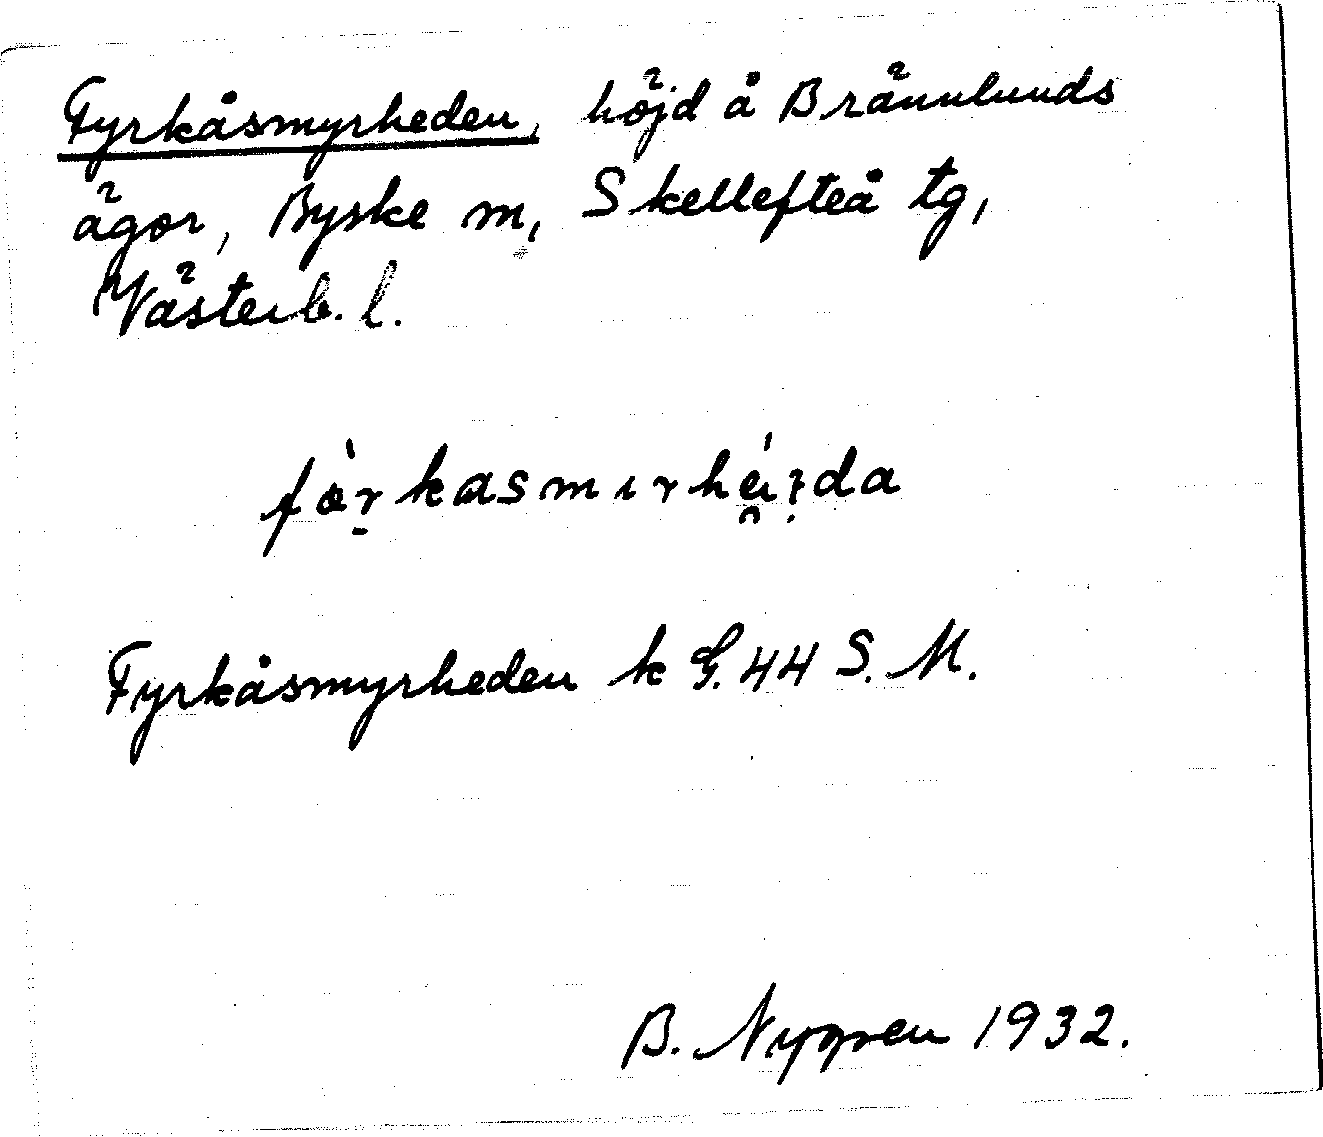 Fyrkåsmyrheden, höjd å Brännlunds
ägor, Byske m, Skellefteå tg,
Västerb. l.
Fyrkåsmyrheden k G. 44 S. M.
B. Nygren 1932.